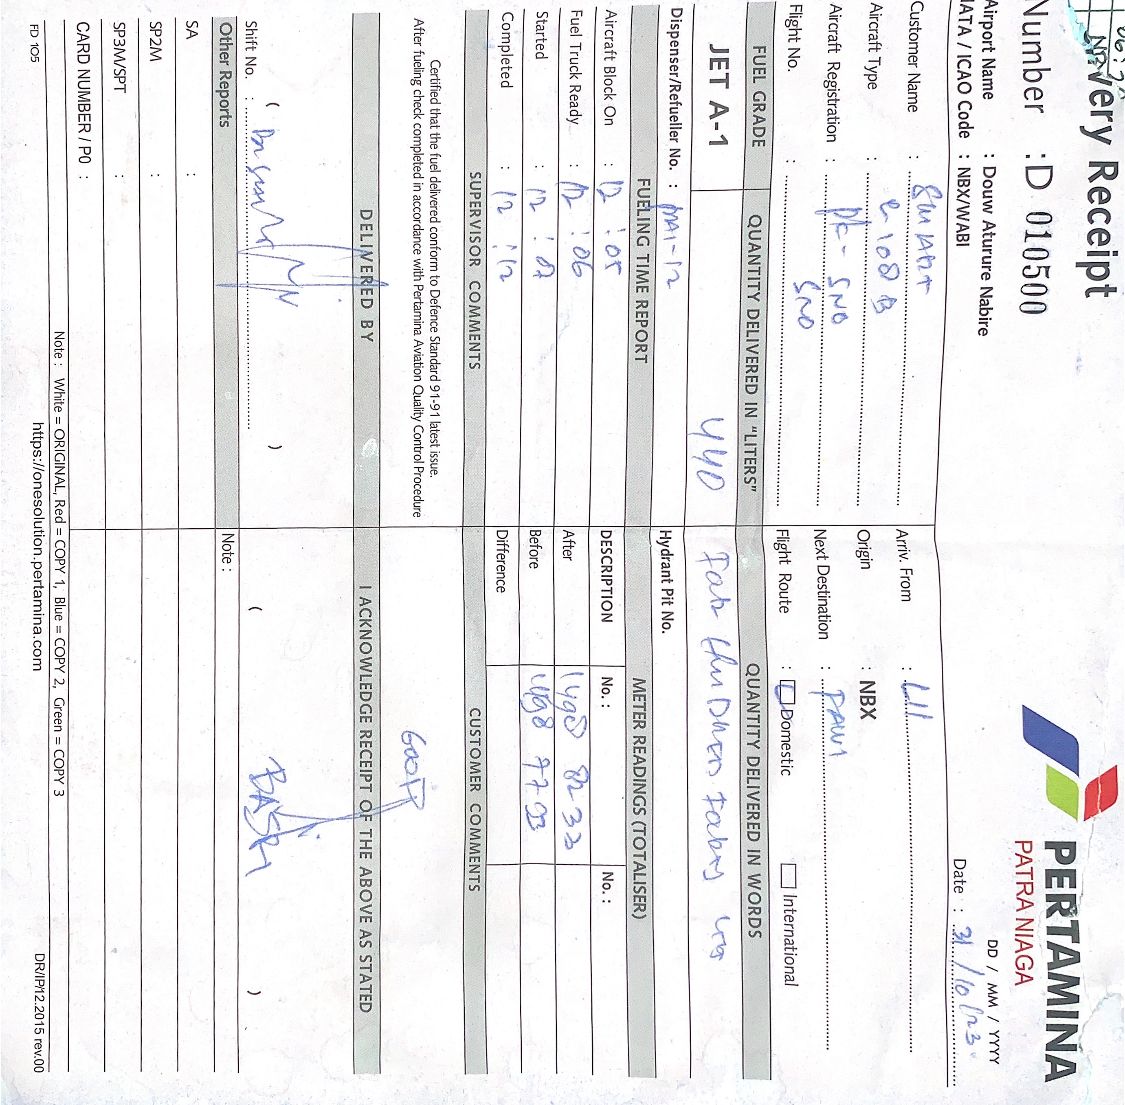 very Receipt
PERTAMINA
PATRA NIAGA
Number : D 010500
DD / MM / YYYY
Airport Name : Douw Aturure Nabire
IATA / ICAO Code : NBX/WABI
Date : 31/10/23
Customer Name : SMART
Arriv. From : LII
Aircraft Type : C 208 B
Origin : NBX
Aircraft Registration : PK - SNO
Next Destination :
Flight No. : SNO
Flight Route : Domestic International
FUEL GRADE QUANTITY DELIVERED IN "LITERS" QUANTITY DELIVERED IN WORDS
JET A-1 440
Dispenser/Refueller No. : Hydrant Pit No.
FUELING TIME REPORT METER READINGS (TOTALISER)
Aircraft Block On : 12 : 05 DESCRIPTION No. : No. :
Fuel Truck Ready : 12 : 06 After 1498 82 33
Started : 12 : 07 Before
Completed : 12 : 12 Difference
SUPERVISOR COMMENTS CUSTOMER COMMENTS
Certified that the fuel delivered conform to Defence Standard 91-91 latest issue.
After fueling check completed in accordance with Pertamina Aviation Quality Control Procedure
Good
DELIVERED BY I ACKNOWLEDGE RECEIPT OF THE ABOVE AS STATED
Shift No. : ( ) ( )
Other Reports Note :
SA :
SP2M :
SP3M/SPT :
CARD NUMBER / PO :
Note : White = ORIGINAL, Red = COPY 1, Blue = COPY 2, Green = COPY 3
FD 105 https://onesolution.pertamina.com DR/IP/12.2015 rev.00